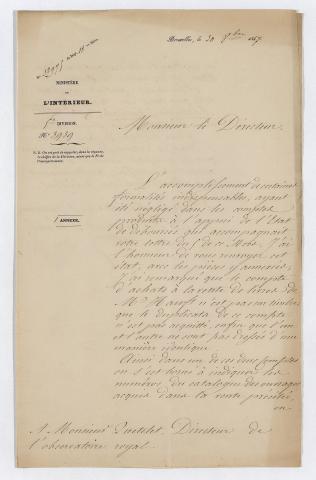 Bruxelles, le 30 8bre 1867
MINISTÈRE
DE
L'INTÉRIEUR.
5e
DIVISION.
No 3939
N. B. On est prié de rappeler, dans la réponse,
le chiffre de la Division, ainsi que le No de
l'enregistrement.
1 ANNEXE.
Monsieur le Directeur,
L'accomplissement de certaines
formalités indispensables, ayant
été négligé dans les comptes
produits à l'appui de l'Etat
de déboursés qui accompagnait
votre lettre du 5 de ce Mois, J'ai
l'honneur de vous renvoyer cet
état, avec les pièces y annexées.
J'ai remarqué que le compte
d'achats à la vente de livres de
Mr n'est pas en timbre
que le duplicata de ce compte
n'est pas acquitté, enfin que l'un
et l'autre ne sont pas dressés d'une
manière identique.
Ainsi dans un de ces deux comptes
on s'est borné à indiquer les
numéros du catalogue des ouvrages
acquis dans la vente précitée,
en
A Monsieur Quetelet, Directeur de
l'observatoire royal.